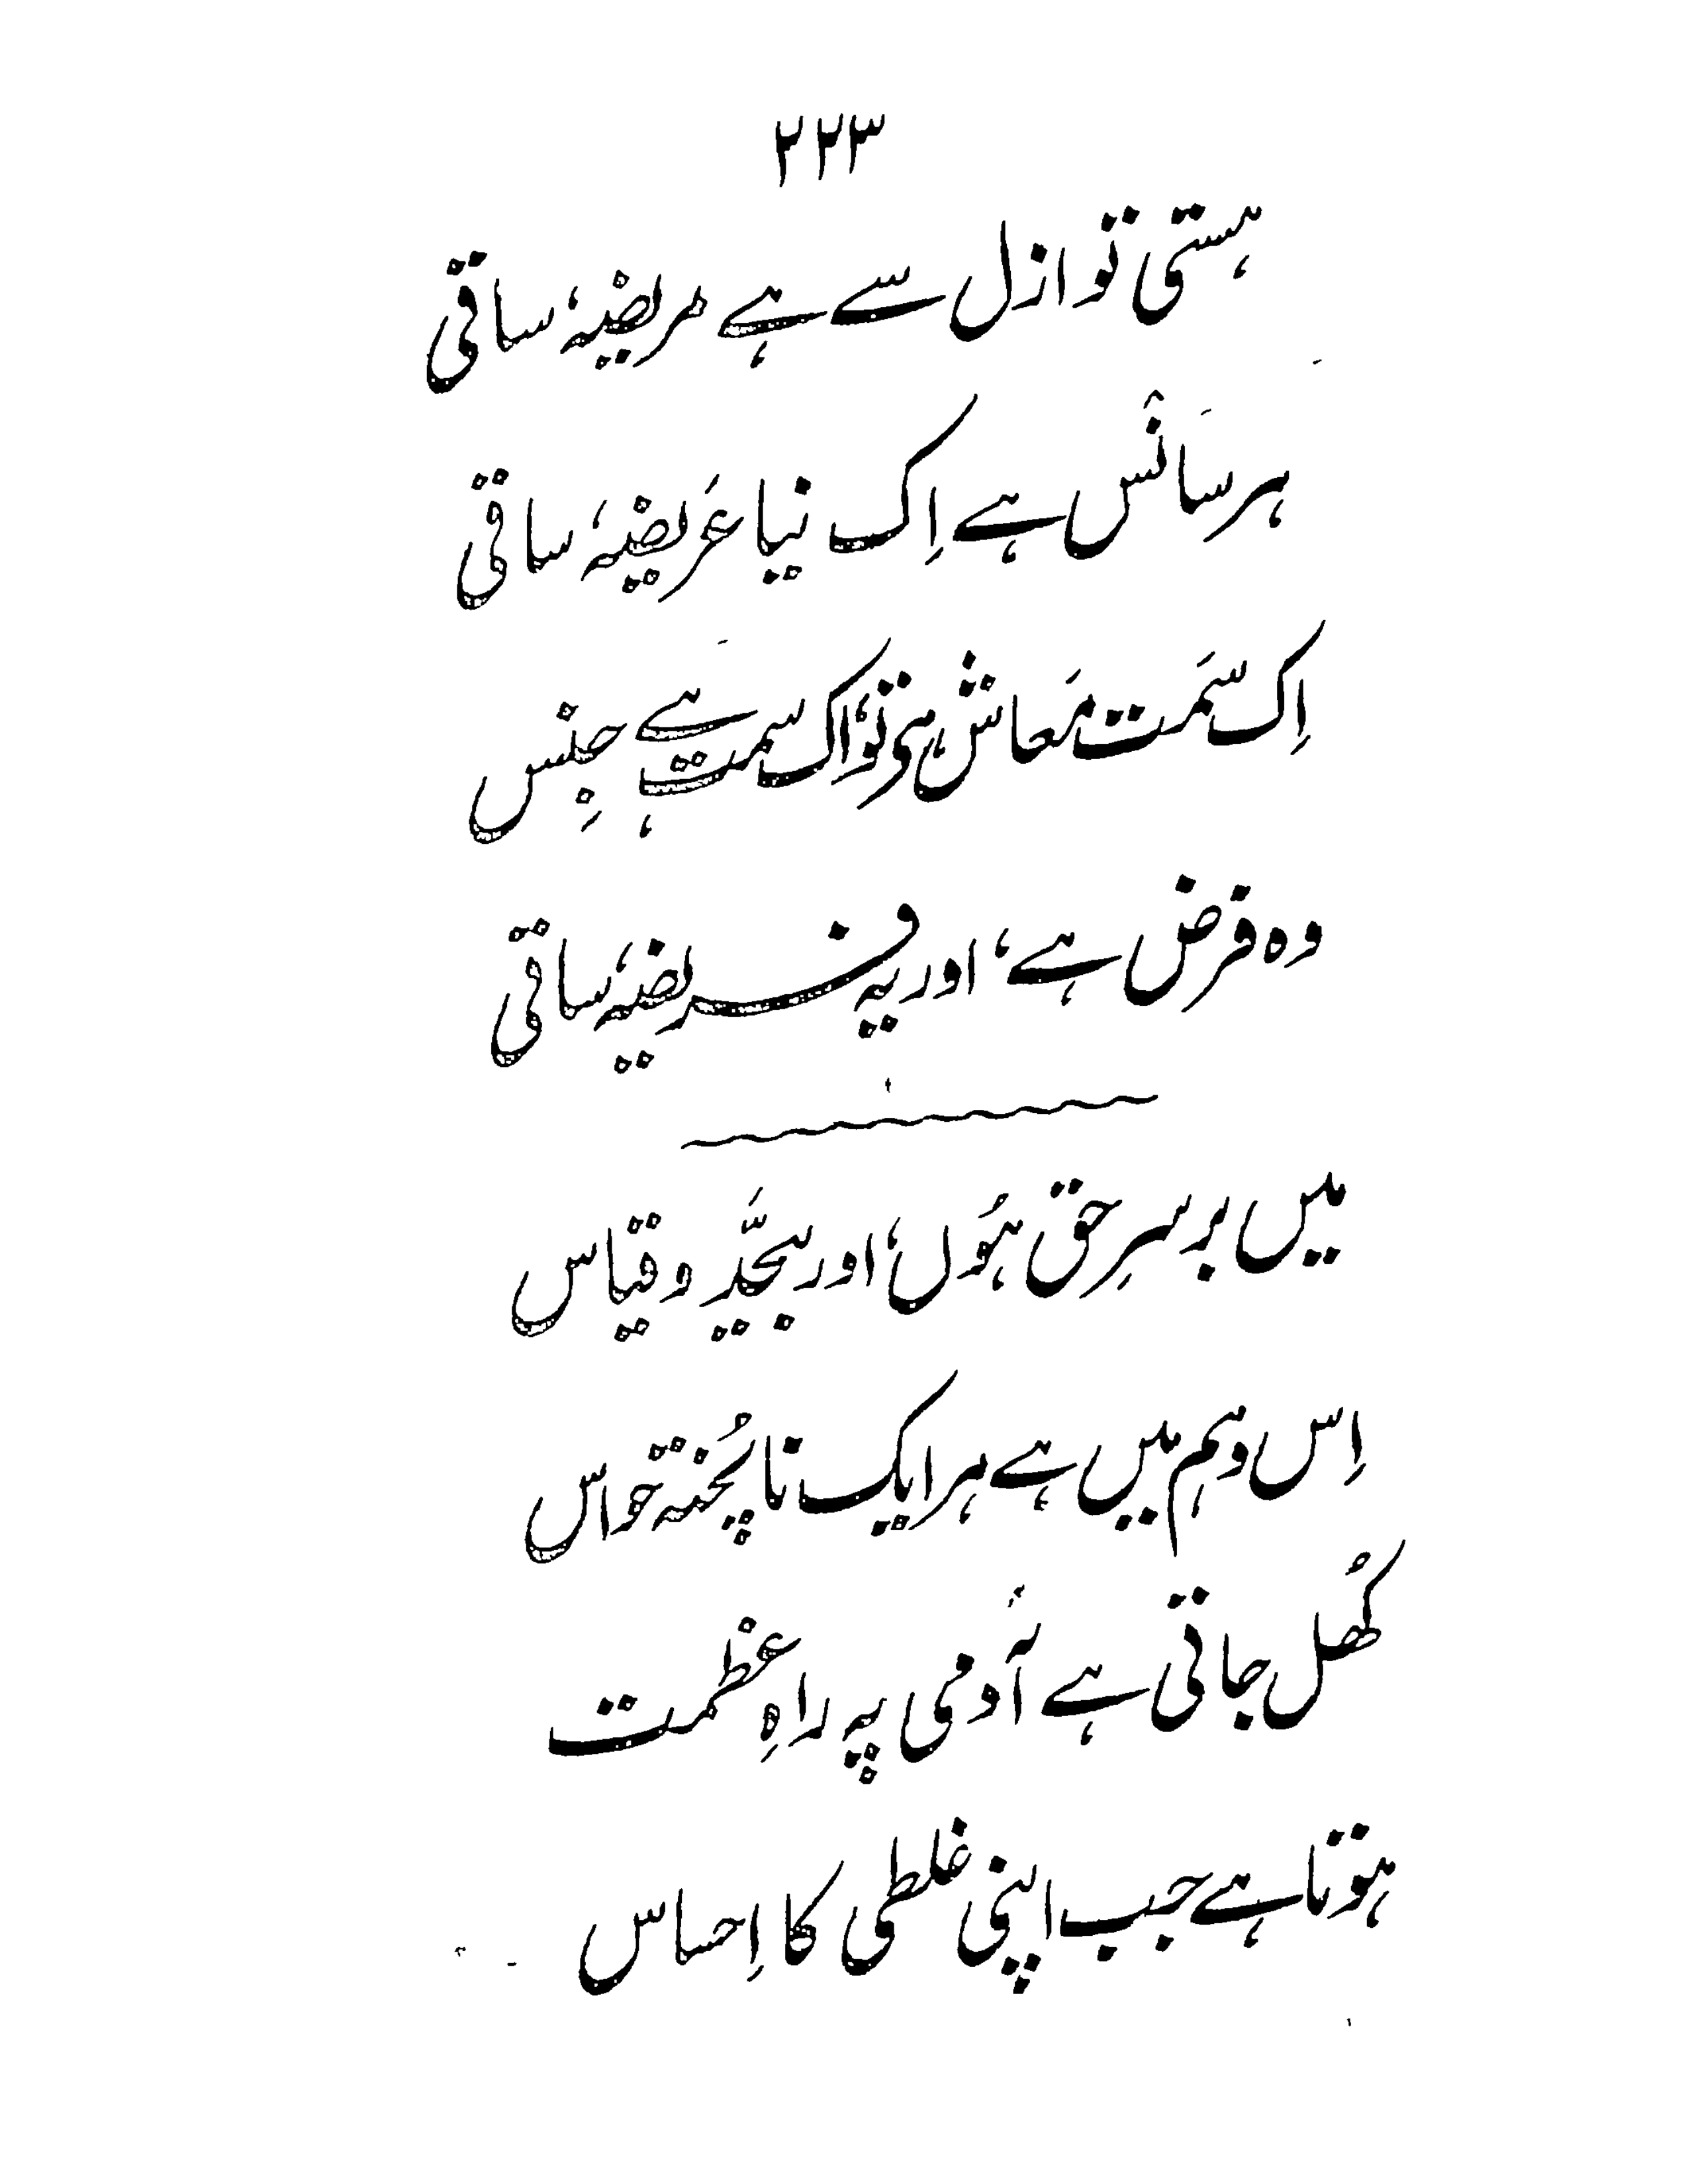 ۲۲۳
ہستی تو ازل سے ہے مریضہ، ساقی
ہر سَانْس ہے اِک نیا عَریضہ، ساقی
اِک سَمت مَعاش ہی تو، اک سمت ہے جِنس
وہ قرض ہے، اور یہ فریضہ، ساقی
میں بر سرِ حق ہُوں، اور بیحَدّ و قیاس
اِس وہم میں ہے ہر ایک ناپُختہ حواس
کُھل جاتی ہے آدمی پہ راہِ عظمت
ہوتا ہے جب اپنی غلطی کا اِحساس